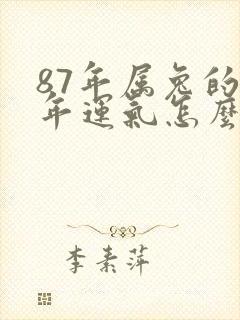 87年属兔的
年運氣怎麼
李素萍